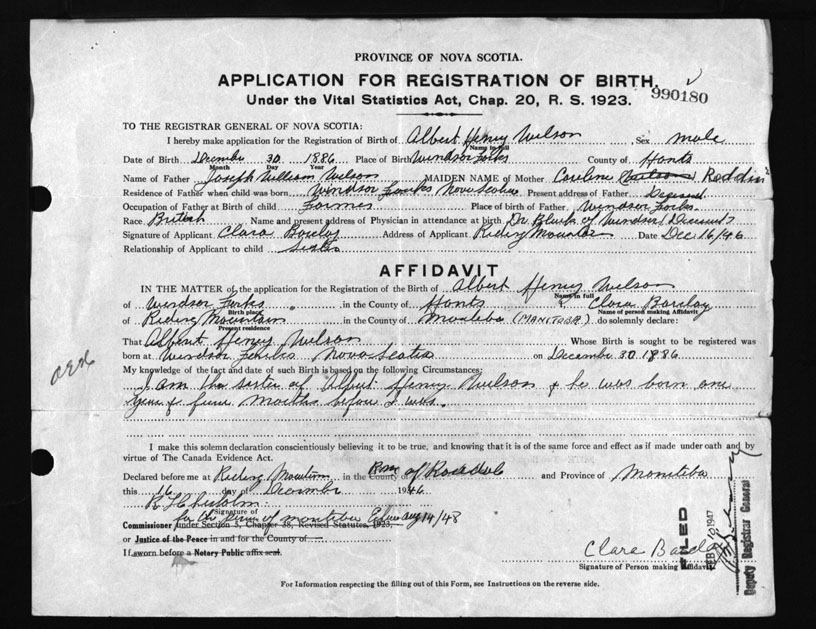 PROVINCE OF NOVA SCOTIA.
APPLICATION FOR REGISTRATION OF BIRTH.
Under the Vital Statistics Act, Chap. 20, R. S. 1923.
990180
TO THE REGISTRAR GENERAL OF NOVA SCOTIA:
I hereby make application for the Registration of Birth of Albert Henry Wilson Sex male
Name in full
Date of Birth December 30 1886 Place of Birth Windsor Forks County of Hants
Month Day Year
Name of Father Joseph William Wilson MAIDEN NAME of Mother Caroline (Wilson) Reddin
Residence of Father when child was born Windsor Forks Nova Scotia Present address of Father Deceased
Occupation of Father at Birth of child Farmer Place of birth of Father Windsor Forks
Race British Name and present address of Physician in attendance at birth Dr Black of Windsor (Deceased)
Signature of Applicant Clara Barclay Address of Applicant Riding Mountain Date Dec 16/46
Relationship of Applicant to child Sister
AFFIDAVIT
IN THE MATTER of the application for the Registration of the Birth of Albert Henry Wilson
Name in full
of Windsor Forks in the County of Hants & Clara Barclay
Birth place Name of person making Affidavit
of Riding Mountain in the County of Manitoba (MANITOBA) do solemnly declare:
Present residence
That Albert Henry Wilson Whose Birth is sought to be registered was
born at Windsor Forks Nova Scotia on December 30 1886
My knowledge of the fact and date of such Birth is based on the following Circumstances:
I am the sister of Albert Henry Wilson & he was born one
year & five months before I was.
I make this solemn declaration conscientiously believing it to be true, and knowing that it is of the same force and effect as if made under oath and by
virtue of The Canada Evidence Act.
Declared before me at Riding Mountain in the County of Rosedale and Province of Manitoba
this 16 day of December 1946
R H Chisholm
Signature of
for the Province of Manitoba Expires Aug 14/48
Commissioner under Section 3, Chapter 38, Revised Statutes, 1923,
or Justice of the Peace in and for the County of
If sworn before a Notary Public affix seal.
Clara Barclay
Signature of Person making Affidavit
FILED
FEB 10 1947
Deputy Registrar General
For Information respecting the filling out of this Form, see Instructions on the reverse side.